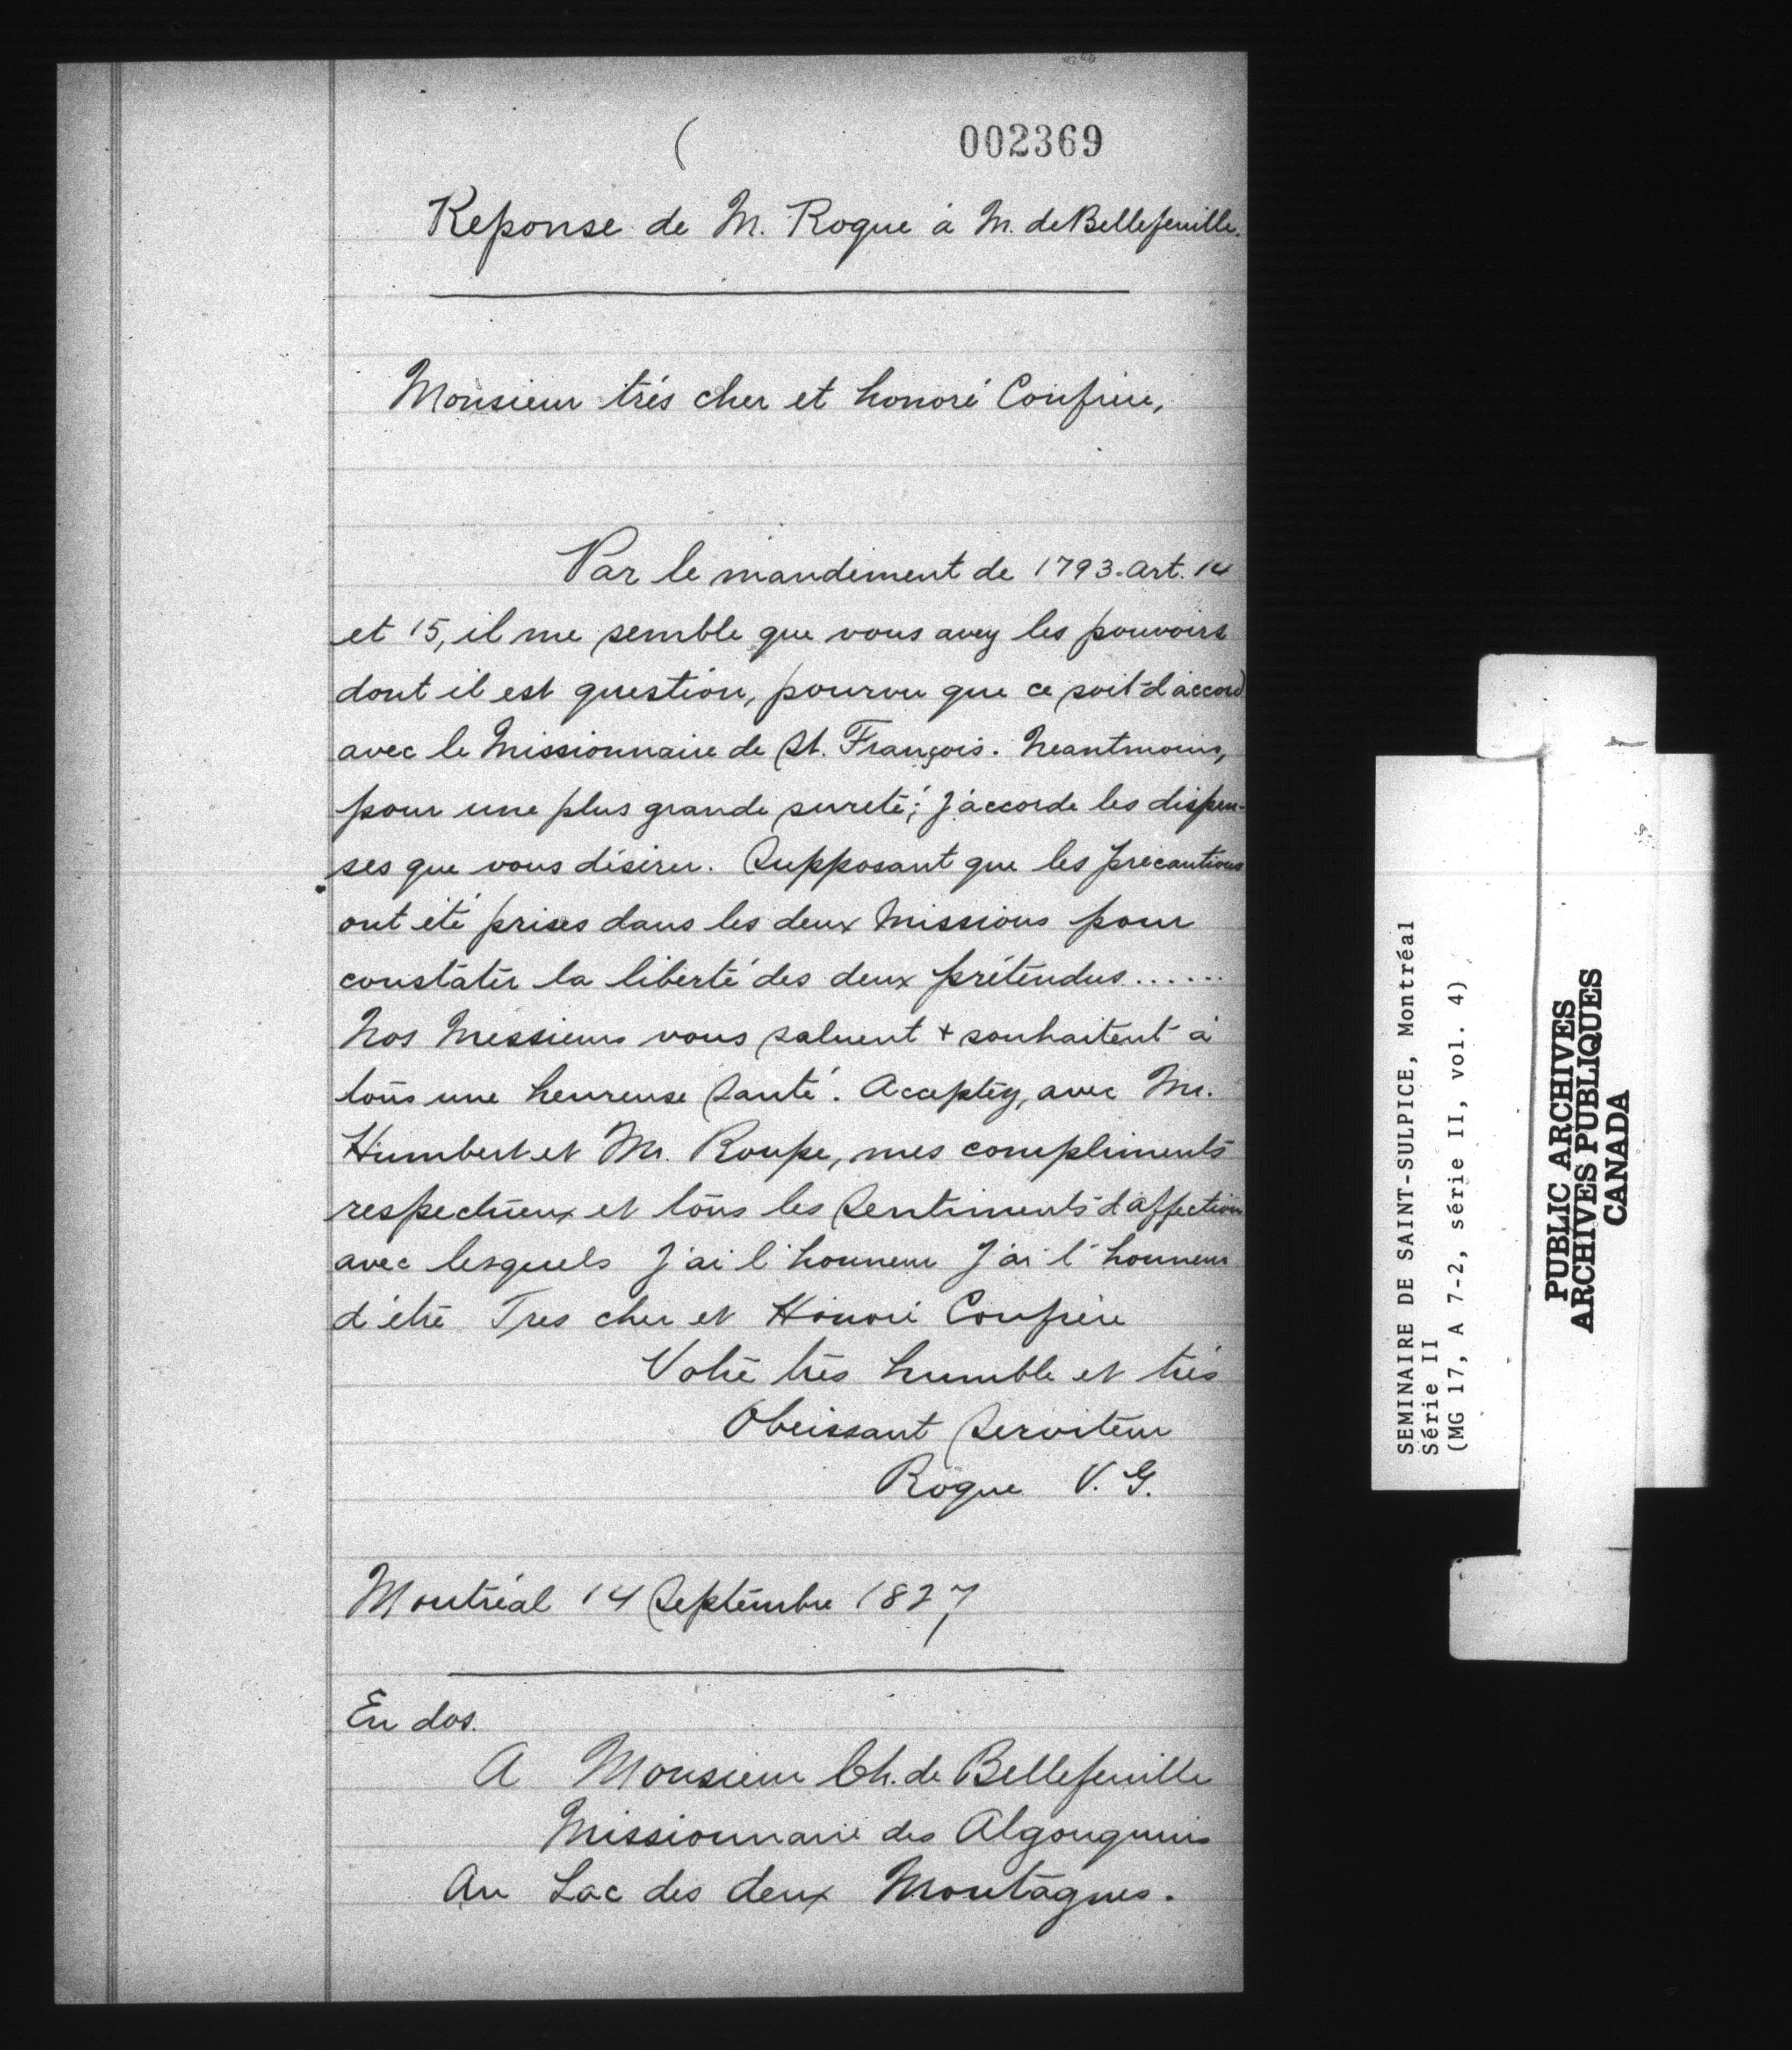 002369
Reponse de M. Roque à M. de Bellefeuille.
Monsieur très cher et honoré Confrère,
Par le mandement de 1793. art. 14
et 15, il me semble que vous avez les pouvoirs
dont il est question, pourvu que ce soit d'accord
avec le Missionnaire de St. François. Neantmoins,
pour une plus grande sureté; j'accorde les dispen-
ses que vous désirer. Supposant que les précautions
ont été prises dans les deux Missions pour
constater la liberté des deux prétendus......
Nos Messieurs vous saluent + souhaitent à
tous une heureuse Santé. Acceptez, avec Mr.
Humbert et Mr. Roupe, mes compliments
respectueux et tous les Sentiments d'affection
avec lesquels J'ai l'honneur J'ai l'honneur
d'être Tres cher et Honoré Confrère
Votre très humble et très
Obeissant Serviteur
Roque V. G.
Montréal 14 Septembre 1827
En dos.
A Monsieur Ch. de Bellefeuille
Missionnaire des Algonquins
Au Lac des deux Montagnes.
SEMINAIRE DE SAINT-SULPICE, Montréal
Série II
(MG 17, A 7-2, série II, vol. 4)
PUBLIC ARCHIVES
ARCHIVES PUBLIQUES
CANADA